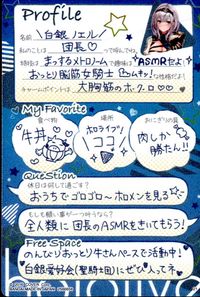 Profile
白銀 ノエル
私のことは 団長♡ って呼んでね。
特技は まっするメトロノーム で趣味は ASMRだよ!
おっとり脳筋女騎士 な性格だよ!
チャームポイントは 大胸筋のホクロ
My Favorite
食べ物
牛丼
場所
ホロライブ!
ココ!
おにぎりの具
肉しか
勝たん!!
Question
休日は何して過ごす?
おうちでゴロゴロ〜 ホロメンを見る
もしも願い事が一つ叶うなら?
全人類に 団長のASMRをきいてもらう!
Free Space
のんびりおっとり牛さんペースで活動中!
白銀愛好会(聖騎士団)にぜひ入って下
hololive